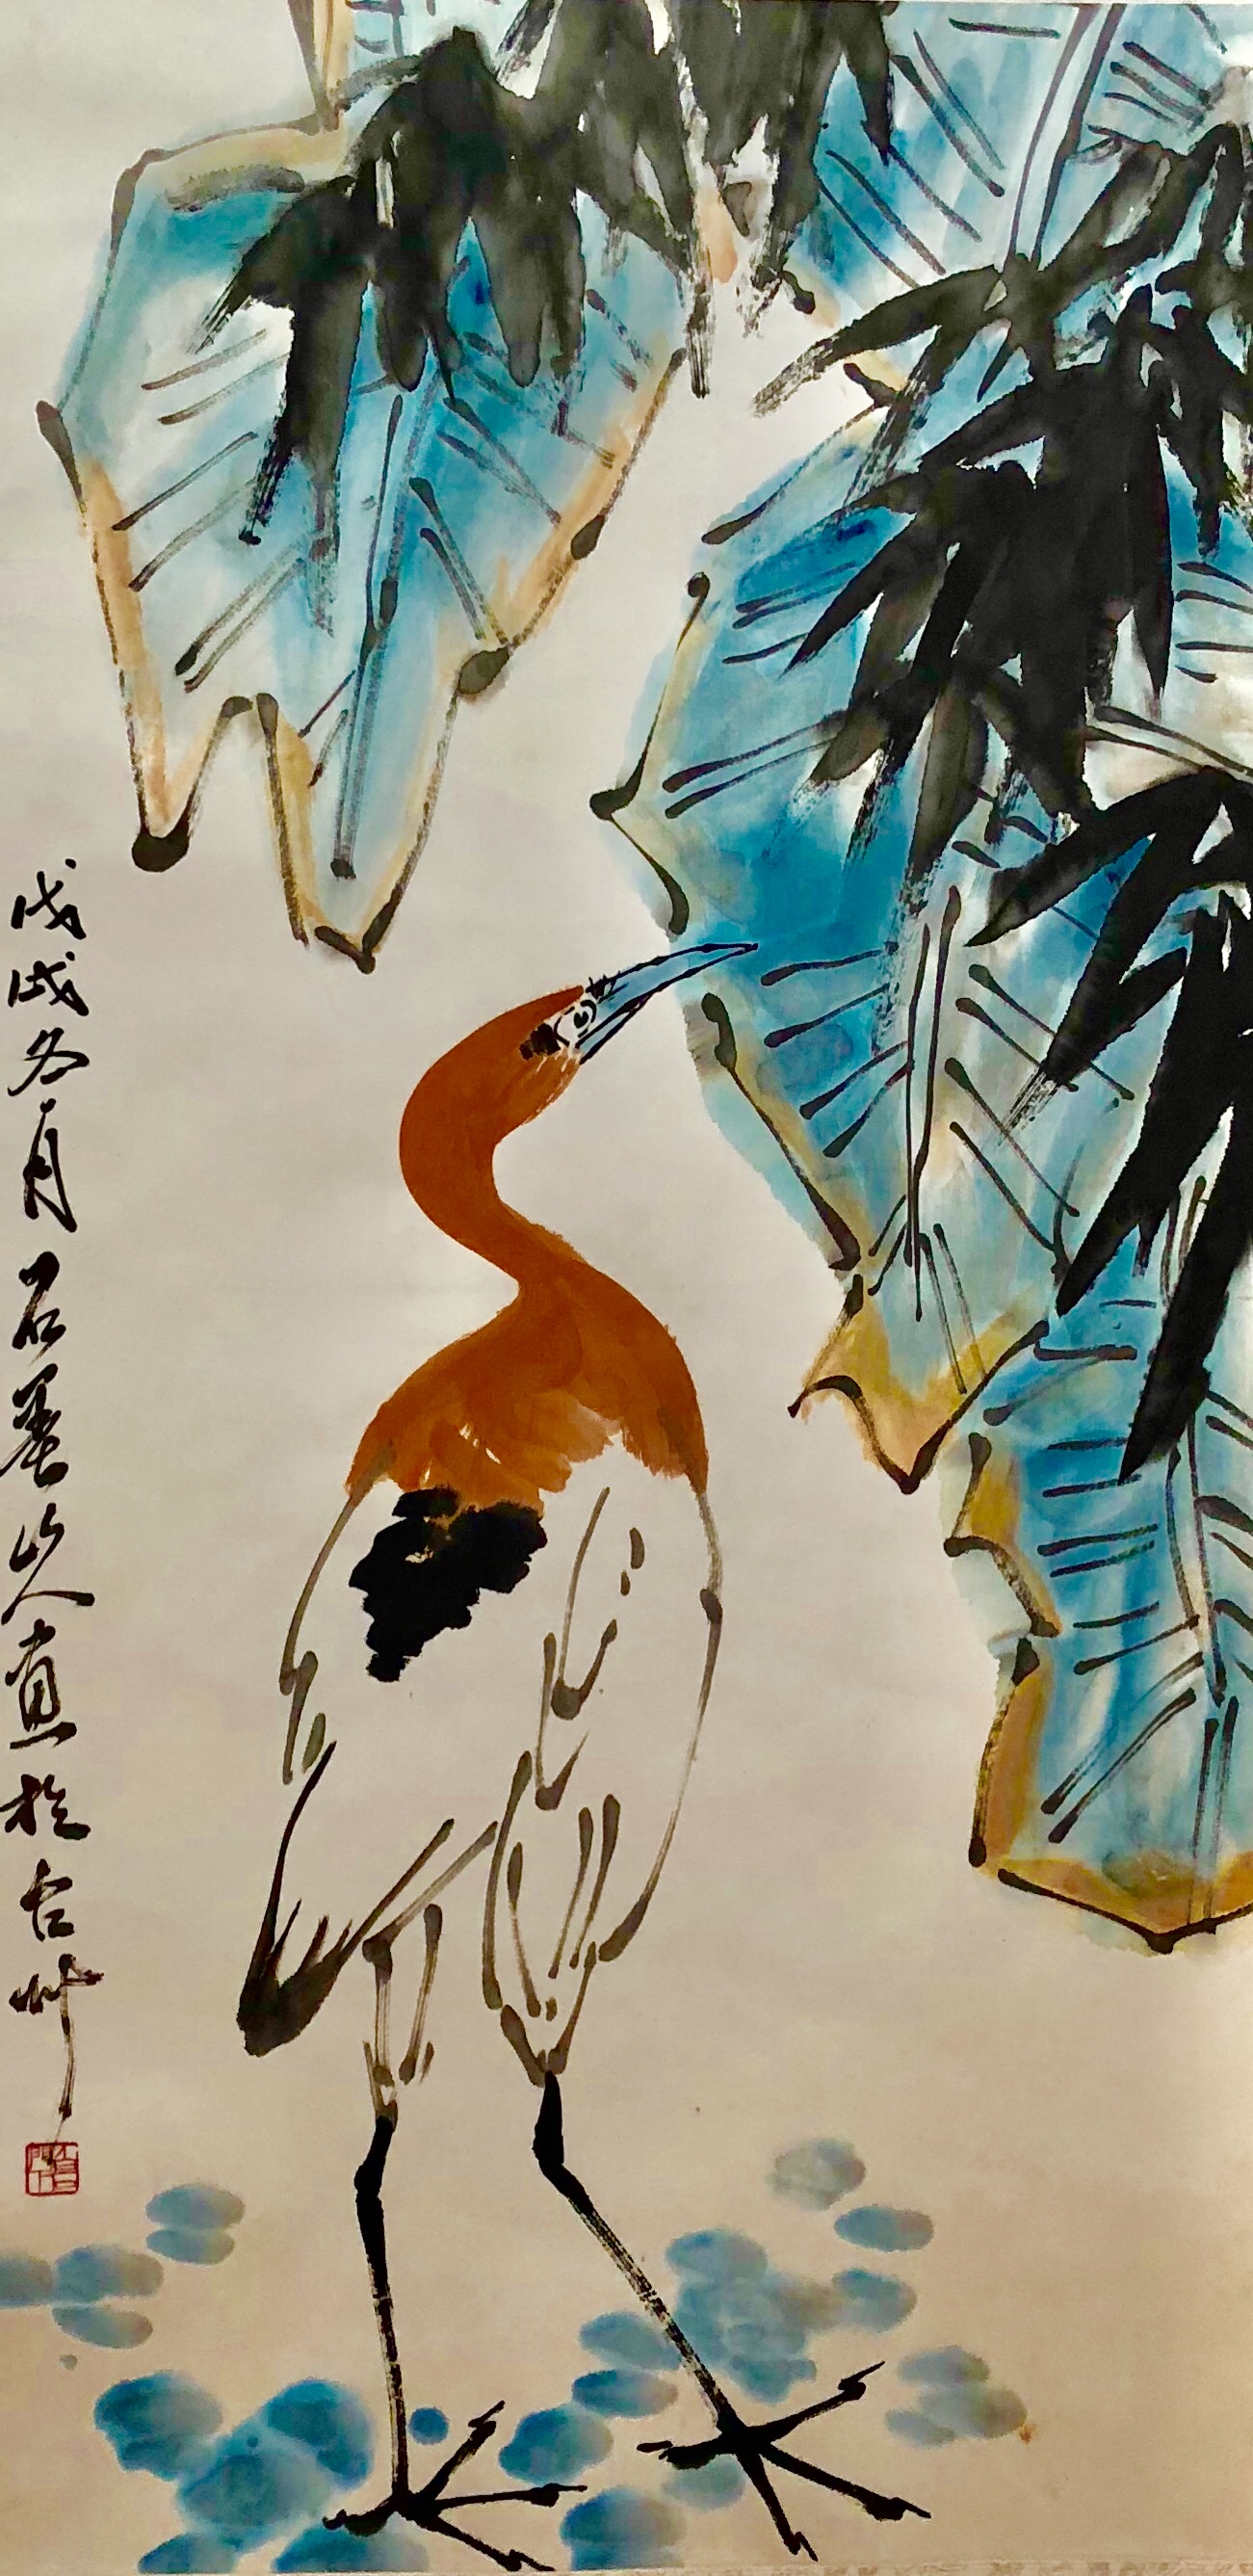 戊戌冬月石墨山人畫於台州